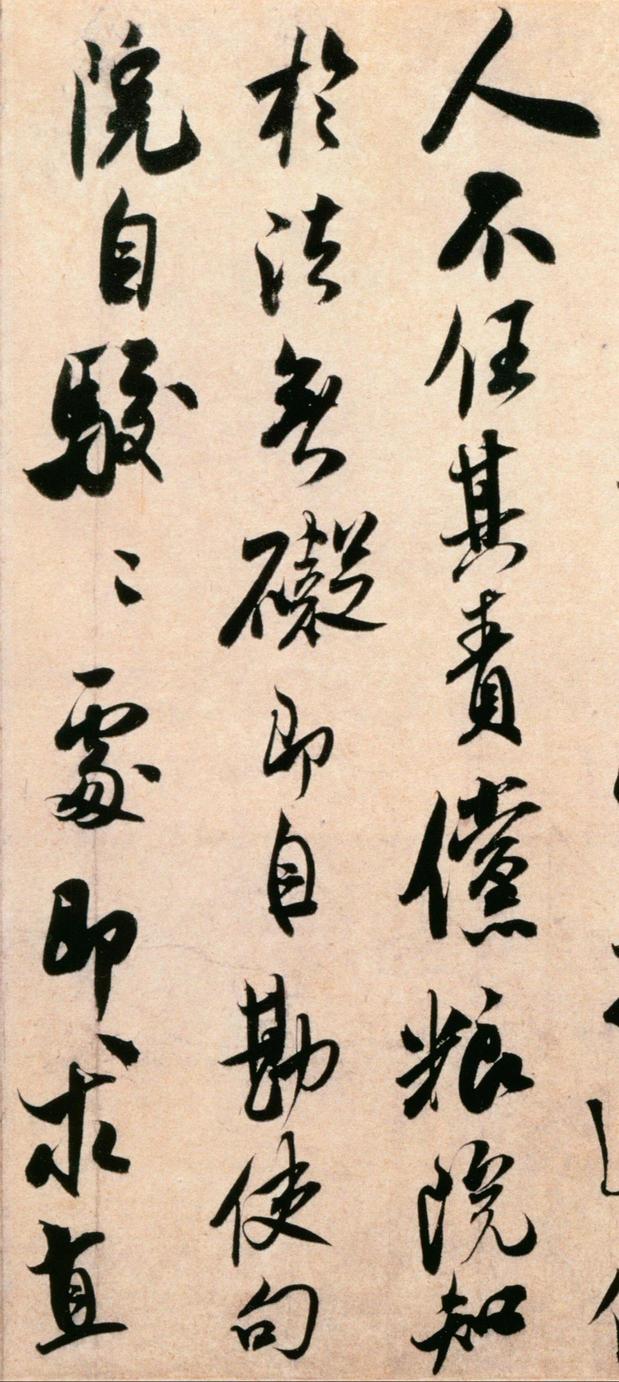 人不任其責儻粮院知
於法無礙即自勘使句
院自駮〻處即求直